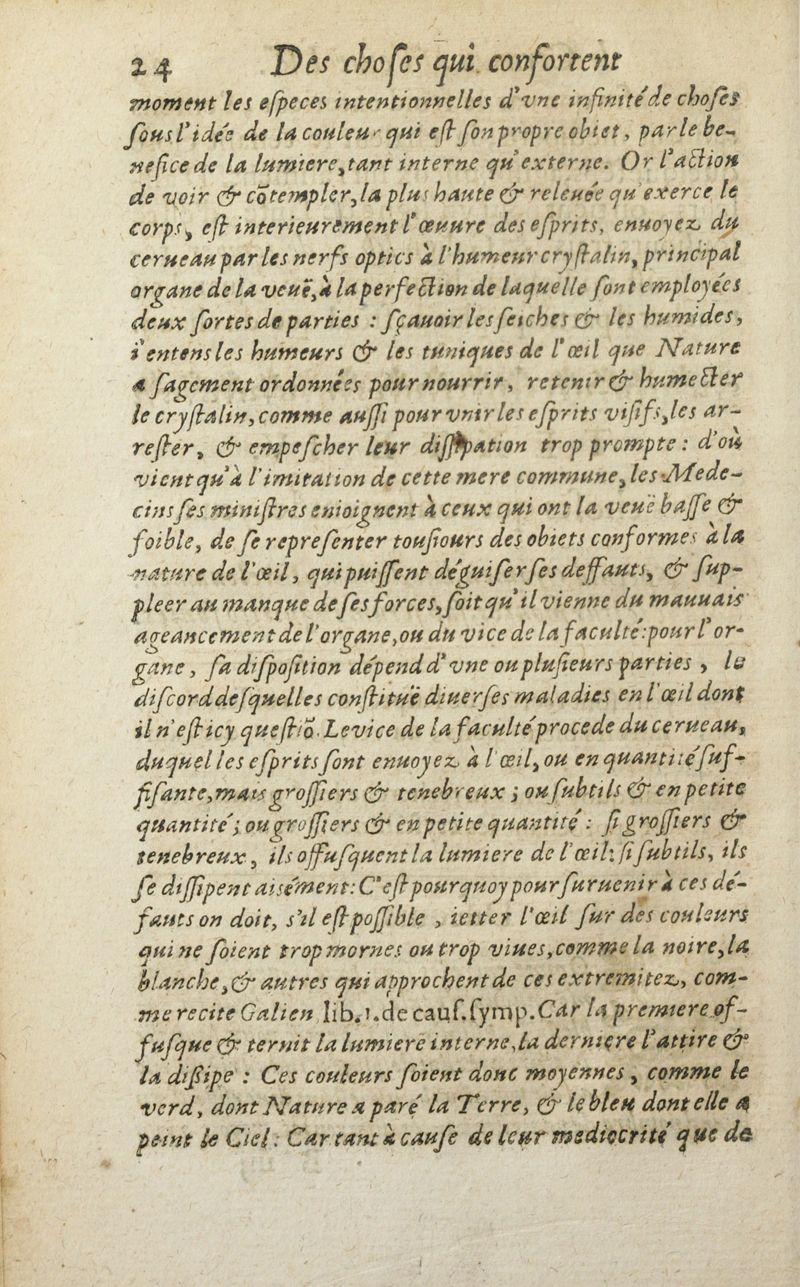 24 Des choſes qui confortent
moment les eſpeces intentionnelles d'vne infinité de choſes
ſous l'idée de la couleur qui eſt ſon propre obiet, par le be-
nefice de la lumiere, tant interne qu'externe. Or l'action
de voir & cōtempler, la plus haute & releuée qu'exerce le
corps, eſt interieurement l'œuure des eſprits, enuoyez du
cerueau par les nerfs optics à l'humeur cryſtalin, principal
organe de la veuë, à la perfection de laquelle ſont employées
deux ſortes de parties : ſçauoir les ſeiches & les humides,
i'entens les humeurs & les tuniques de l'œil que Nature
a ſagement ordonnées pour nourrir, retenir & humecter
le cryſtalin, comme auſſi pour vnir les eſprits viſifs, les ar-
reſter, & empeſcher leur diſſipation trop prompte : d'où
vient qu'à l'imitation de cette mere commune, les Mede-
cins ſes miniſtres enioignent à ceux qui ont la veuë baſſe &
foible, de ſe repreſenter touſiours des obiets conformes à la
nature de l'œil, qui puiſſent déguiſer ſes deffauts, & ſup-
pleer au manque de ſes forces, ſoit qu'il vienne du mauuais
ageancement de l'organe, ou du vice de la faculté: pour l'or-
gane, ſa diſpoſition dépend d'vne ou pluſieurs parties, le
diſcord deſquelles conſtituë diuerſes maladies en l'œil dont
il n'eſt icy queſtiō. Le vice de la faculté procede du cerueau,
duquel les eſprits ſont enuoyez à l'œil, ou en quantité ſuf-
fiſante, mais groſſiers & tenebreux ; ou ſubtils & en petite
quantité ; ou groſſiers & en petite quantité : ſi groſſiers &
tenebreux, ils offuſquent la lumiere de l'œil: ſi ſubtils, ils
ſe diſſipent aisément: C'eſt pourquoy pour ſuruenir à ces dé-
fauts on doit, s'il eſt poſſible, ietter l'œil ſur des couleurs
qui ne ſoient trop mornes ou trop viues, comme la noire, la
blanche, & autres qui approchent de ces extremitez, com-
me recite Galien lib. 1. de cauſ. ſymp. Car la premiere of-
fuſque & ternit la lumiere interne, la derniere l'attire &
la diſſipe : Ces couleurs ſoient donc moyennes, comme le
verd, dont Nature a paré la Terre, & le bleu dont elle a
peint le Ciel : Car tant à cauſe de leur mediocrité que de